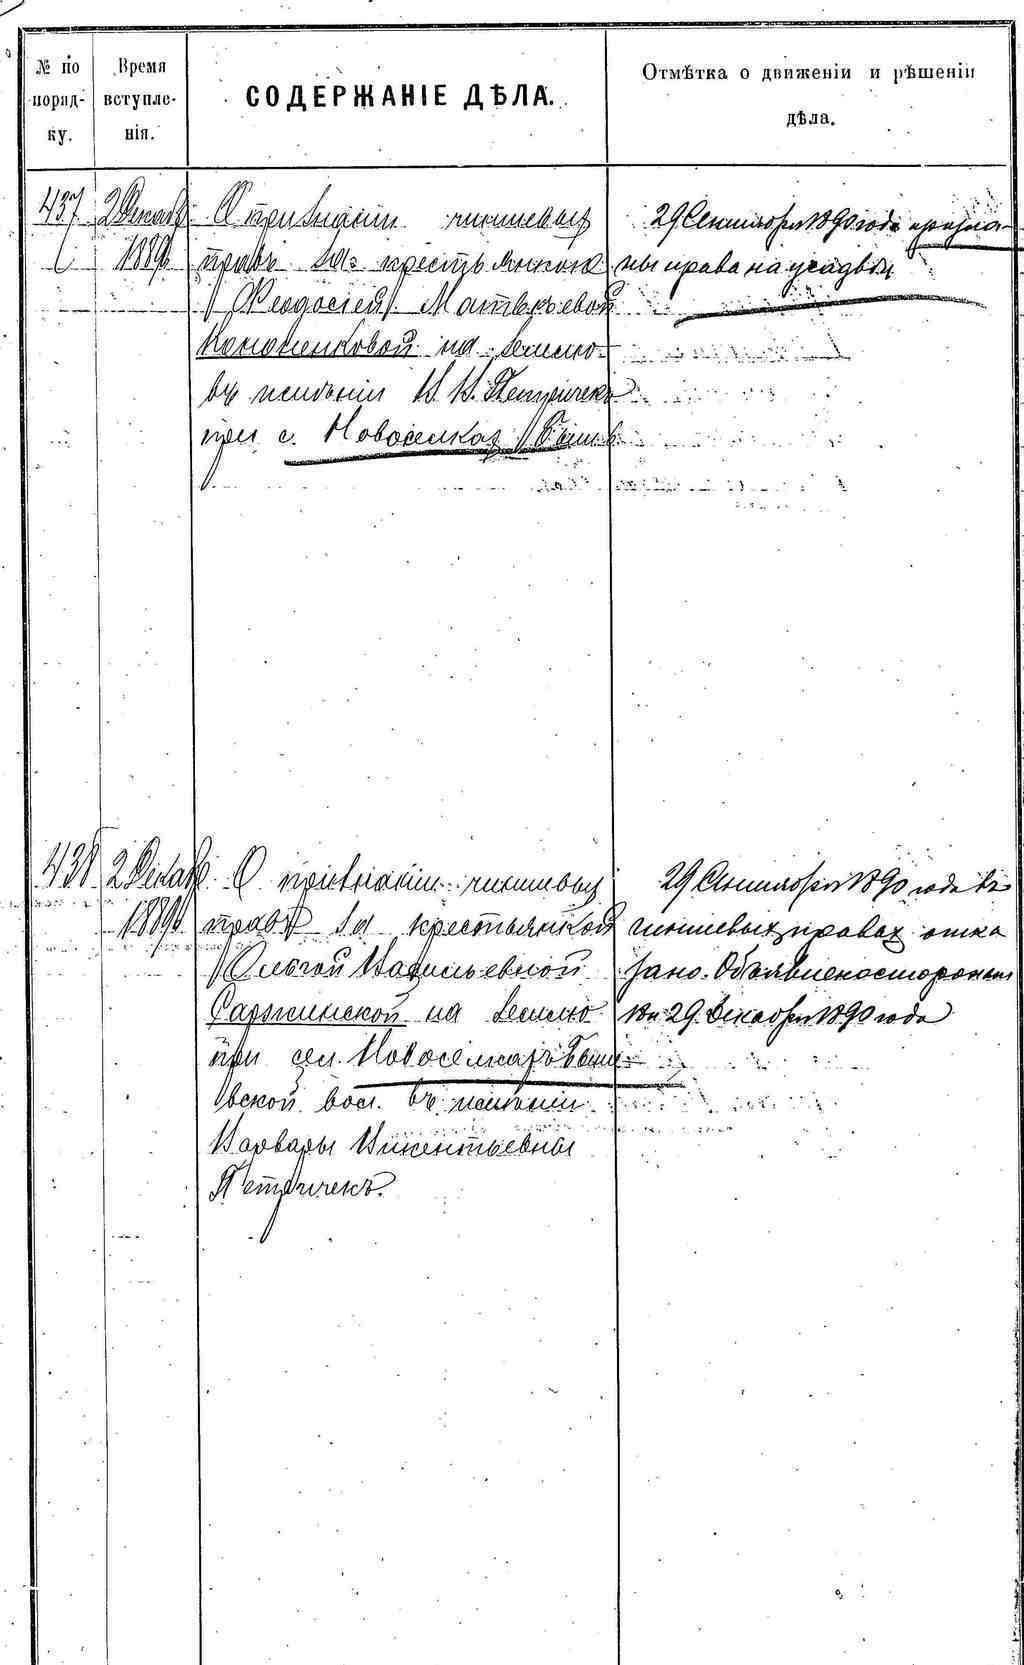 № по
поряд-
ку.
Время
вступле-
нія.
СОДЕРЖАНІЕ ДѢЛА.
Отмѣтка о движеніи и рѣшеніи
дѣла.
437
2 Декабр
1889
О признаніи чиншевых
правъ за крестьянкою
Феодосіей Матвѣевой
Кононенковой на землю
въ имѣніи В. В. Петричекъ
при с. Новоселках Быш. в.
29 Сентября 1890 года призна-
ны права на усадьбу
438
2 Декабр
1889
О признаніи чиншевых
правъ за крестьянкой
Ольгой Васильевной
Саржинской на землю
при сел. Новоселкахъ Быше-
вской вол. въ имѣніи
Варвары Викентьевны
Петричекъ.
29 Сентября 1890 года въ
чиншевых правах отка
зано. Объявлено сторонам
29 Декабря 1890 года